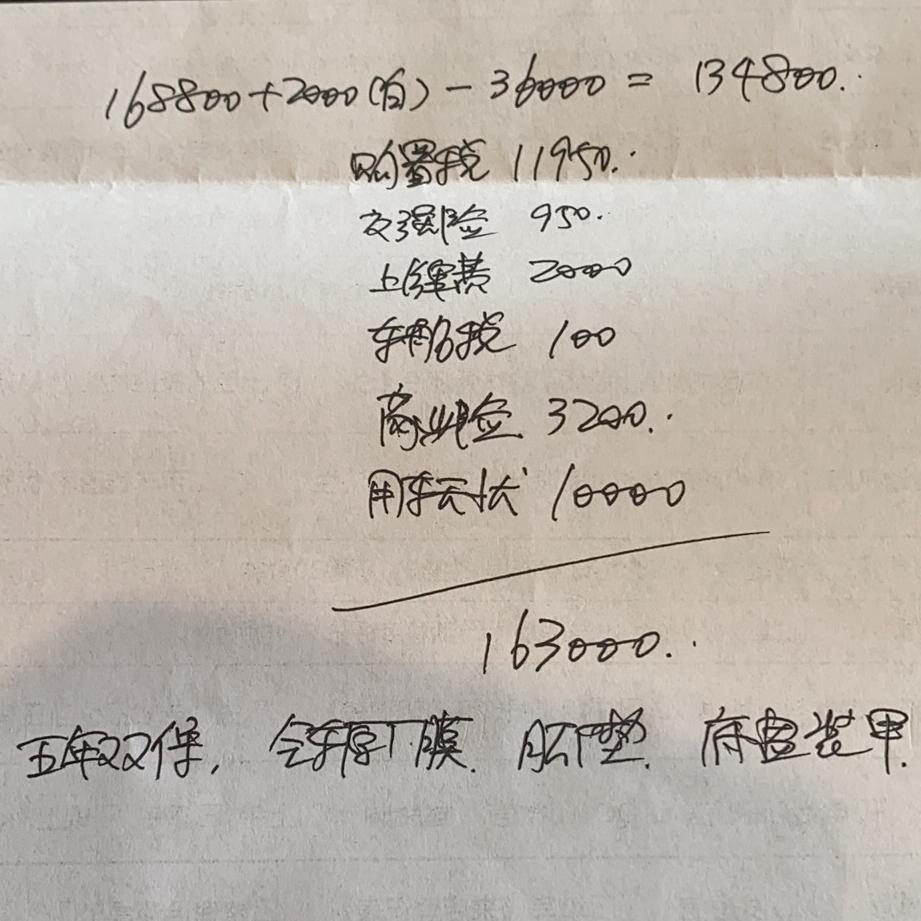 168800+2000(白)-36000=134800.
购置税 11950.
交强险 950.
上牌费 2000
车船税 100
商业险 3200.
用车云状 10000
163000.
五年双保, 全车原厂膜. 脚垫. 底盘装甲.